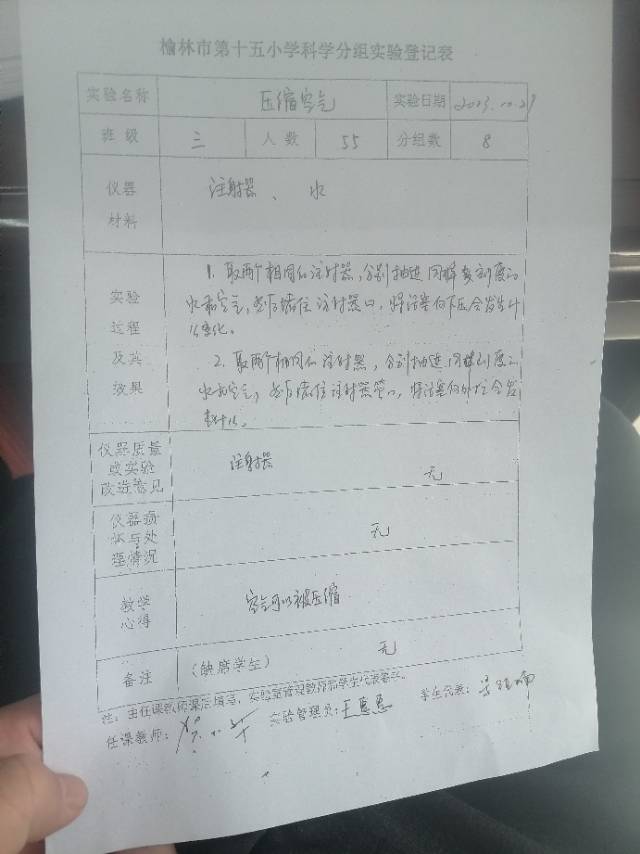 榆林市第十五小学科学分组实验登记表
实验名称 压缩空气 实验日期 2023.10.27
班级 三 人数 55 分组数 8
仪器 注射器、水
材料
实验
过程
及其
效果
1. 取两个相同的注射器,分别抽进同样多刻度的
水和空气,然后堵住注射器口,将活塞向下压会发生什
么变化。
2. 取两个相同的注射器,分别抽进同样刻度的
水和空气,然后堵住注射器管口,将活塞向外拉会发
生什么。
仪器质量
或实验
改进意见
注射器 无
仪器损
坏与处
理情况
无
教学
心得
空气可以被压缩
备注 (缺席学生) 无
注:由任课教师课后填写,实验室管理教师和学生代表签字。
任课教师: 实验管理员:王惠惠 学生代表: